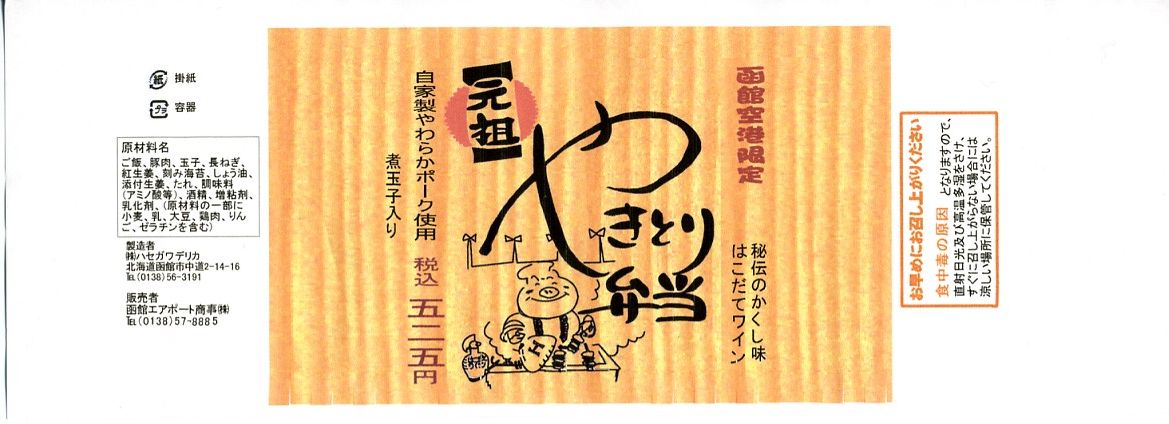 函館空港限定
【元祖】
やきとり
弁当
秘伝のかくし味
はこだてワイン
自家製やわらかポーク使用
煮玉子入り
税込 五二五円
H
紙 掛紙
プラ 容器
原材料名
ご飯、豚肉、玉子、長ねぎ、
紅生姜、刻み海苔、しょう油、
添付生姜、たれ、調味料
(アミノ酸等)、酒精、増粘剤、
乳化剤、(原材料の一部に
小麦、乳、大豆、鶏肉、りん
ご、ゼラチンを含む)
製造者
㈱ハセガワデリカ
北海道函館市中道2-14-16
℡(0138)56-3191
販売者
函館エアポート商事㈱
℡(0138)57-8885
お早めにお召し上がりください
食中毒の原因 となりますので、
直射日光及び高温多湿をさけ、
すぐに召し上がらない場合には
涼しい場所に保管してください。